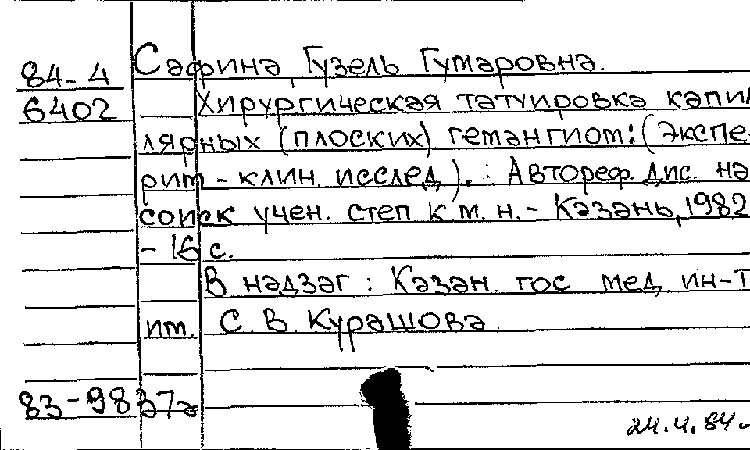 84-4 Сафина, Гузель Гумаровна.
6402 Хирургическая татуировка капил
лярных (плоских) гемангиом: (Экспе-
рим-клин. исслед.). : Автореф. дис. на
соиск учен. степ к.м.н. - Казань, 1982
- 16 с.
В надзаг : Казан. гос мед ин-т
им. С В Курашова
83-9837а
24.4.84